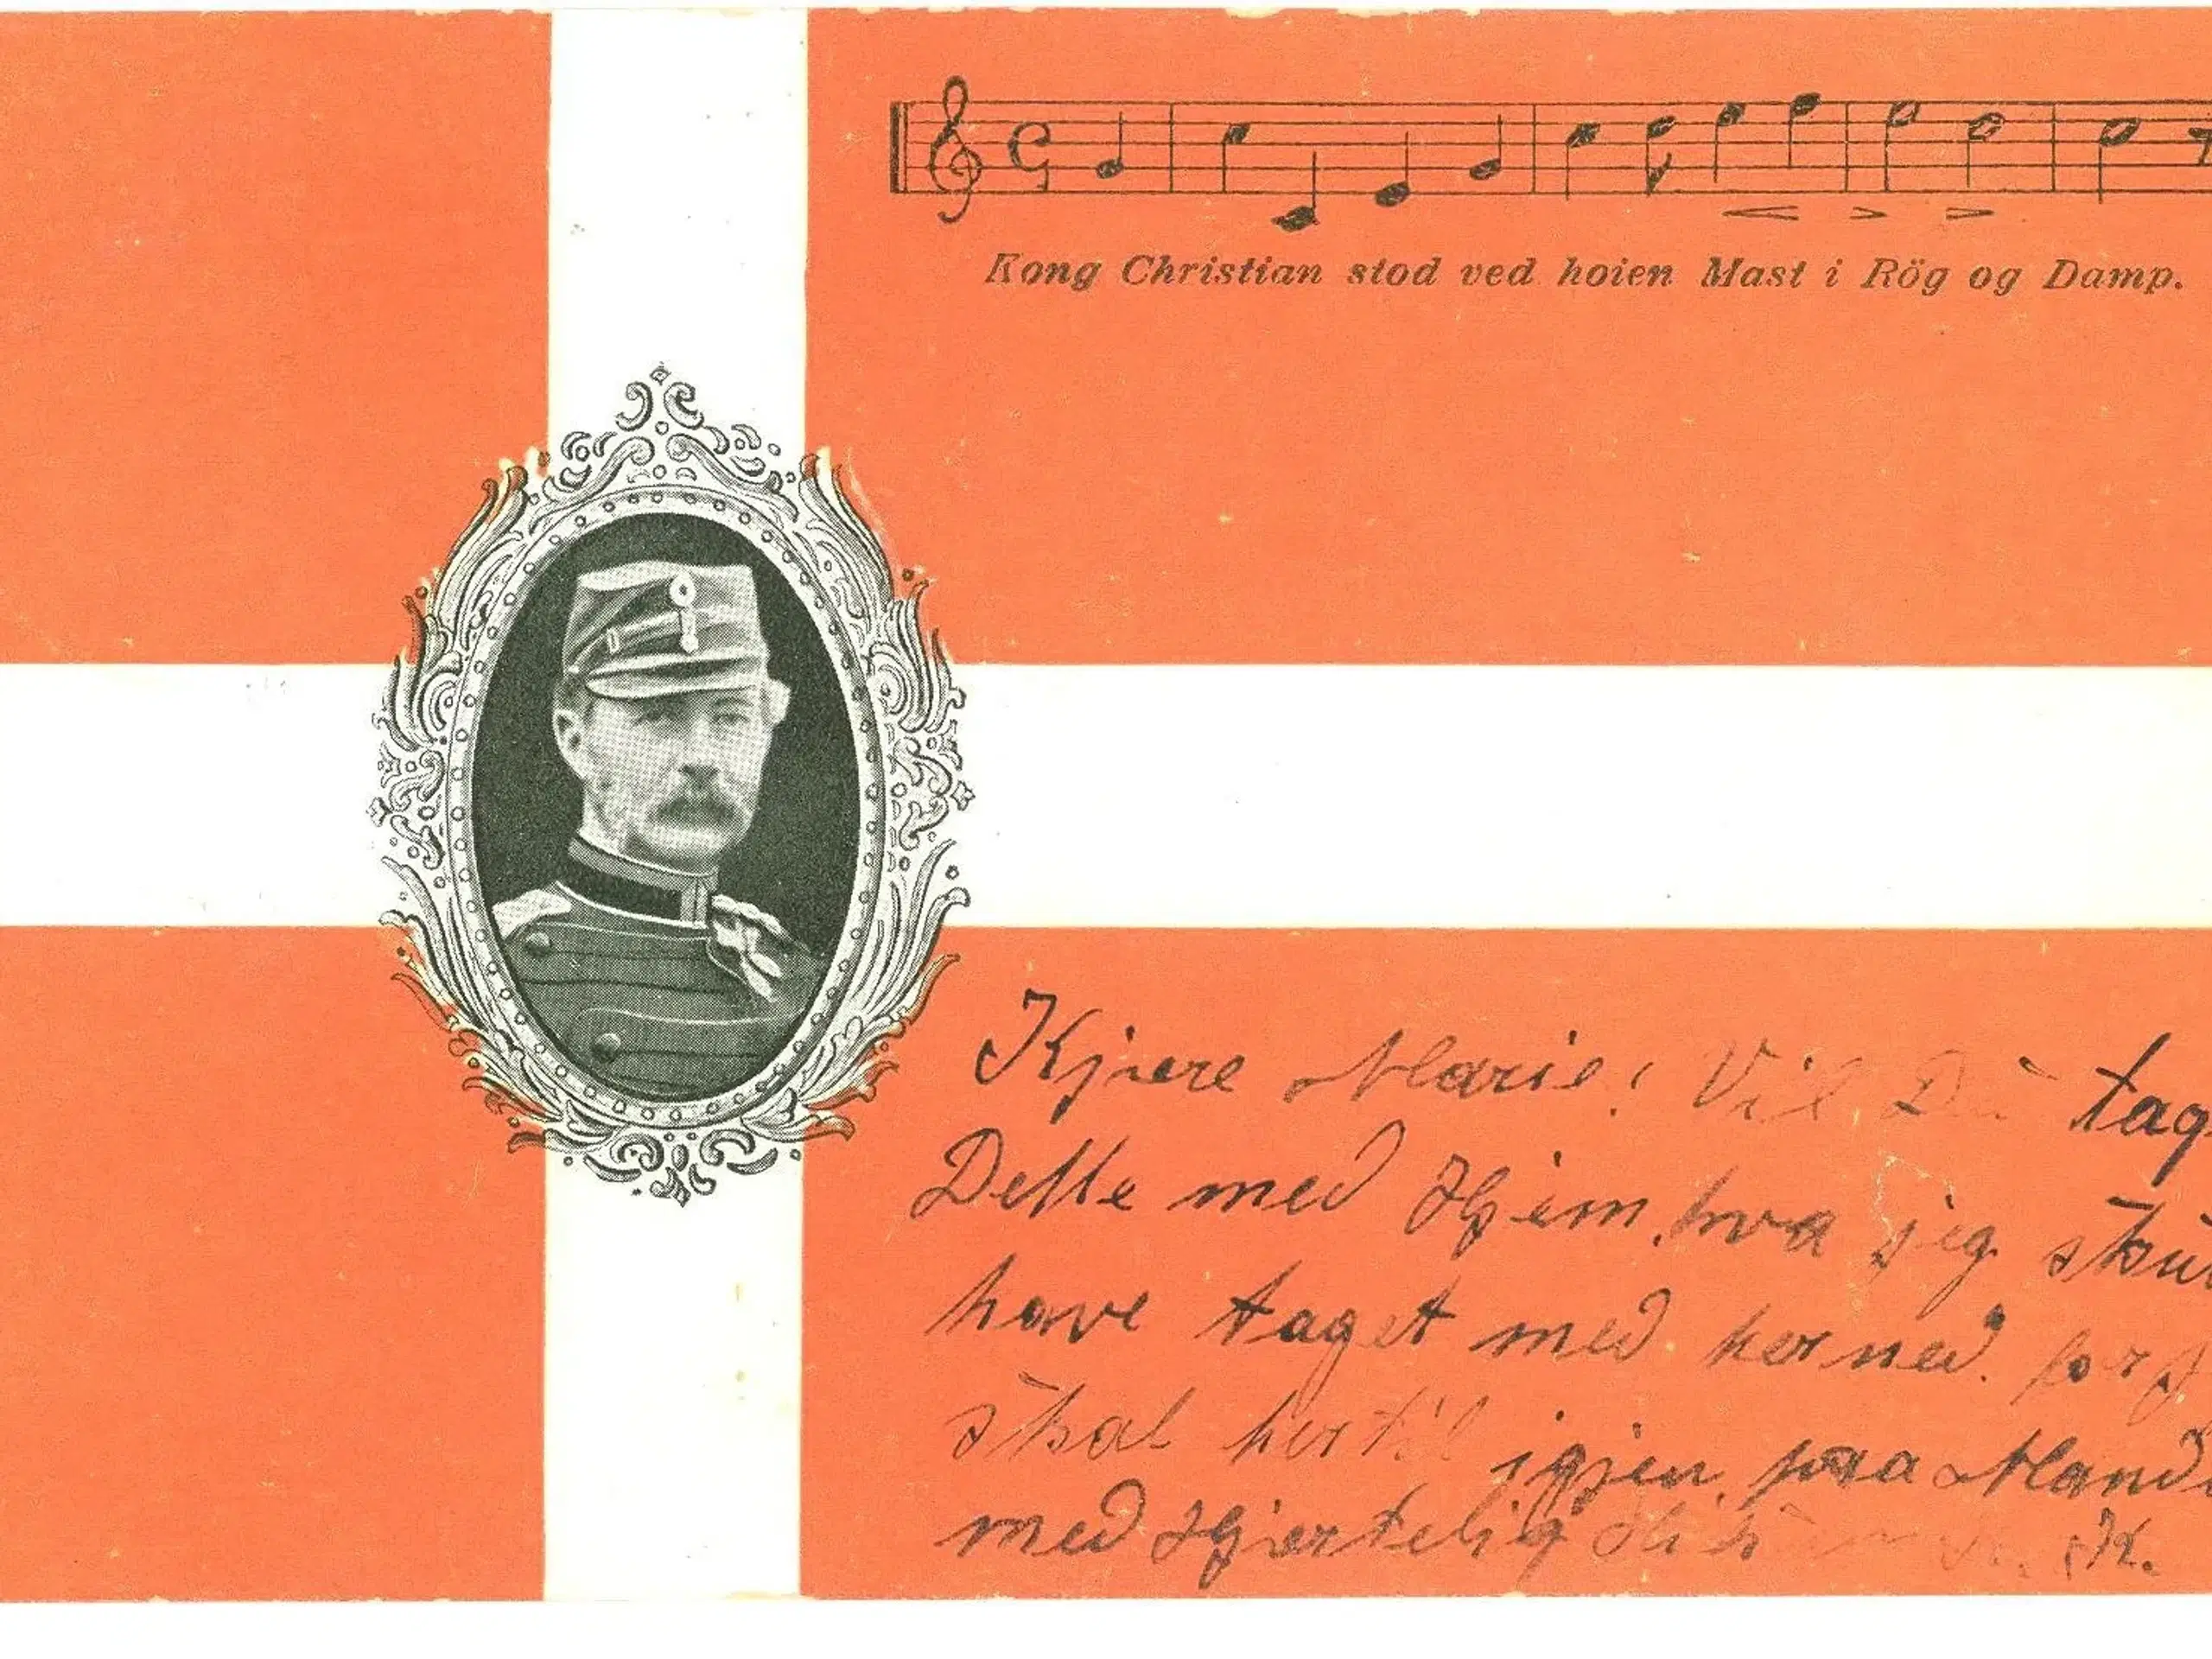 Kong Christian stod ved hoien Mast i Rög og Damp.
Kjære Marie! Vil Du tag
Dette med Hjem, hva jeg sku
have taget med herned. for j
skal hertil igjen paa Mand
med Hjertelig K.